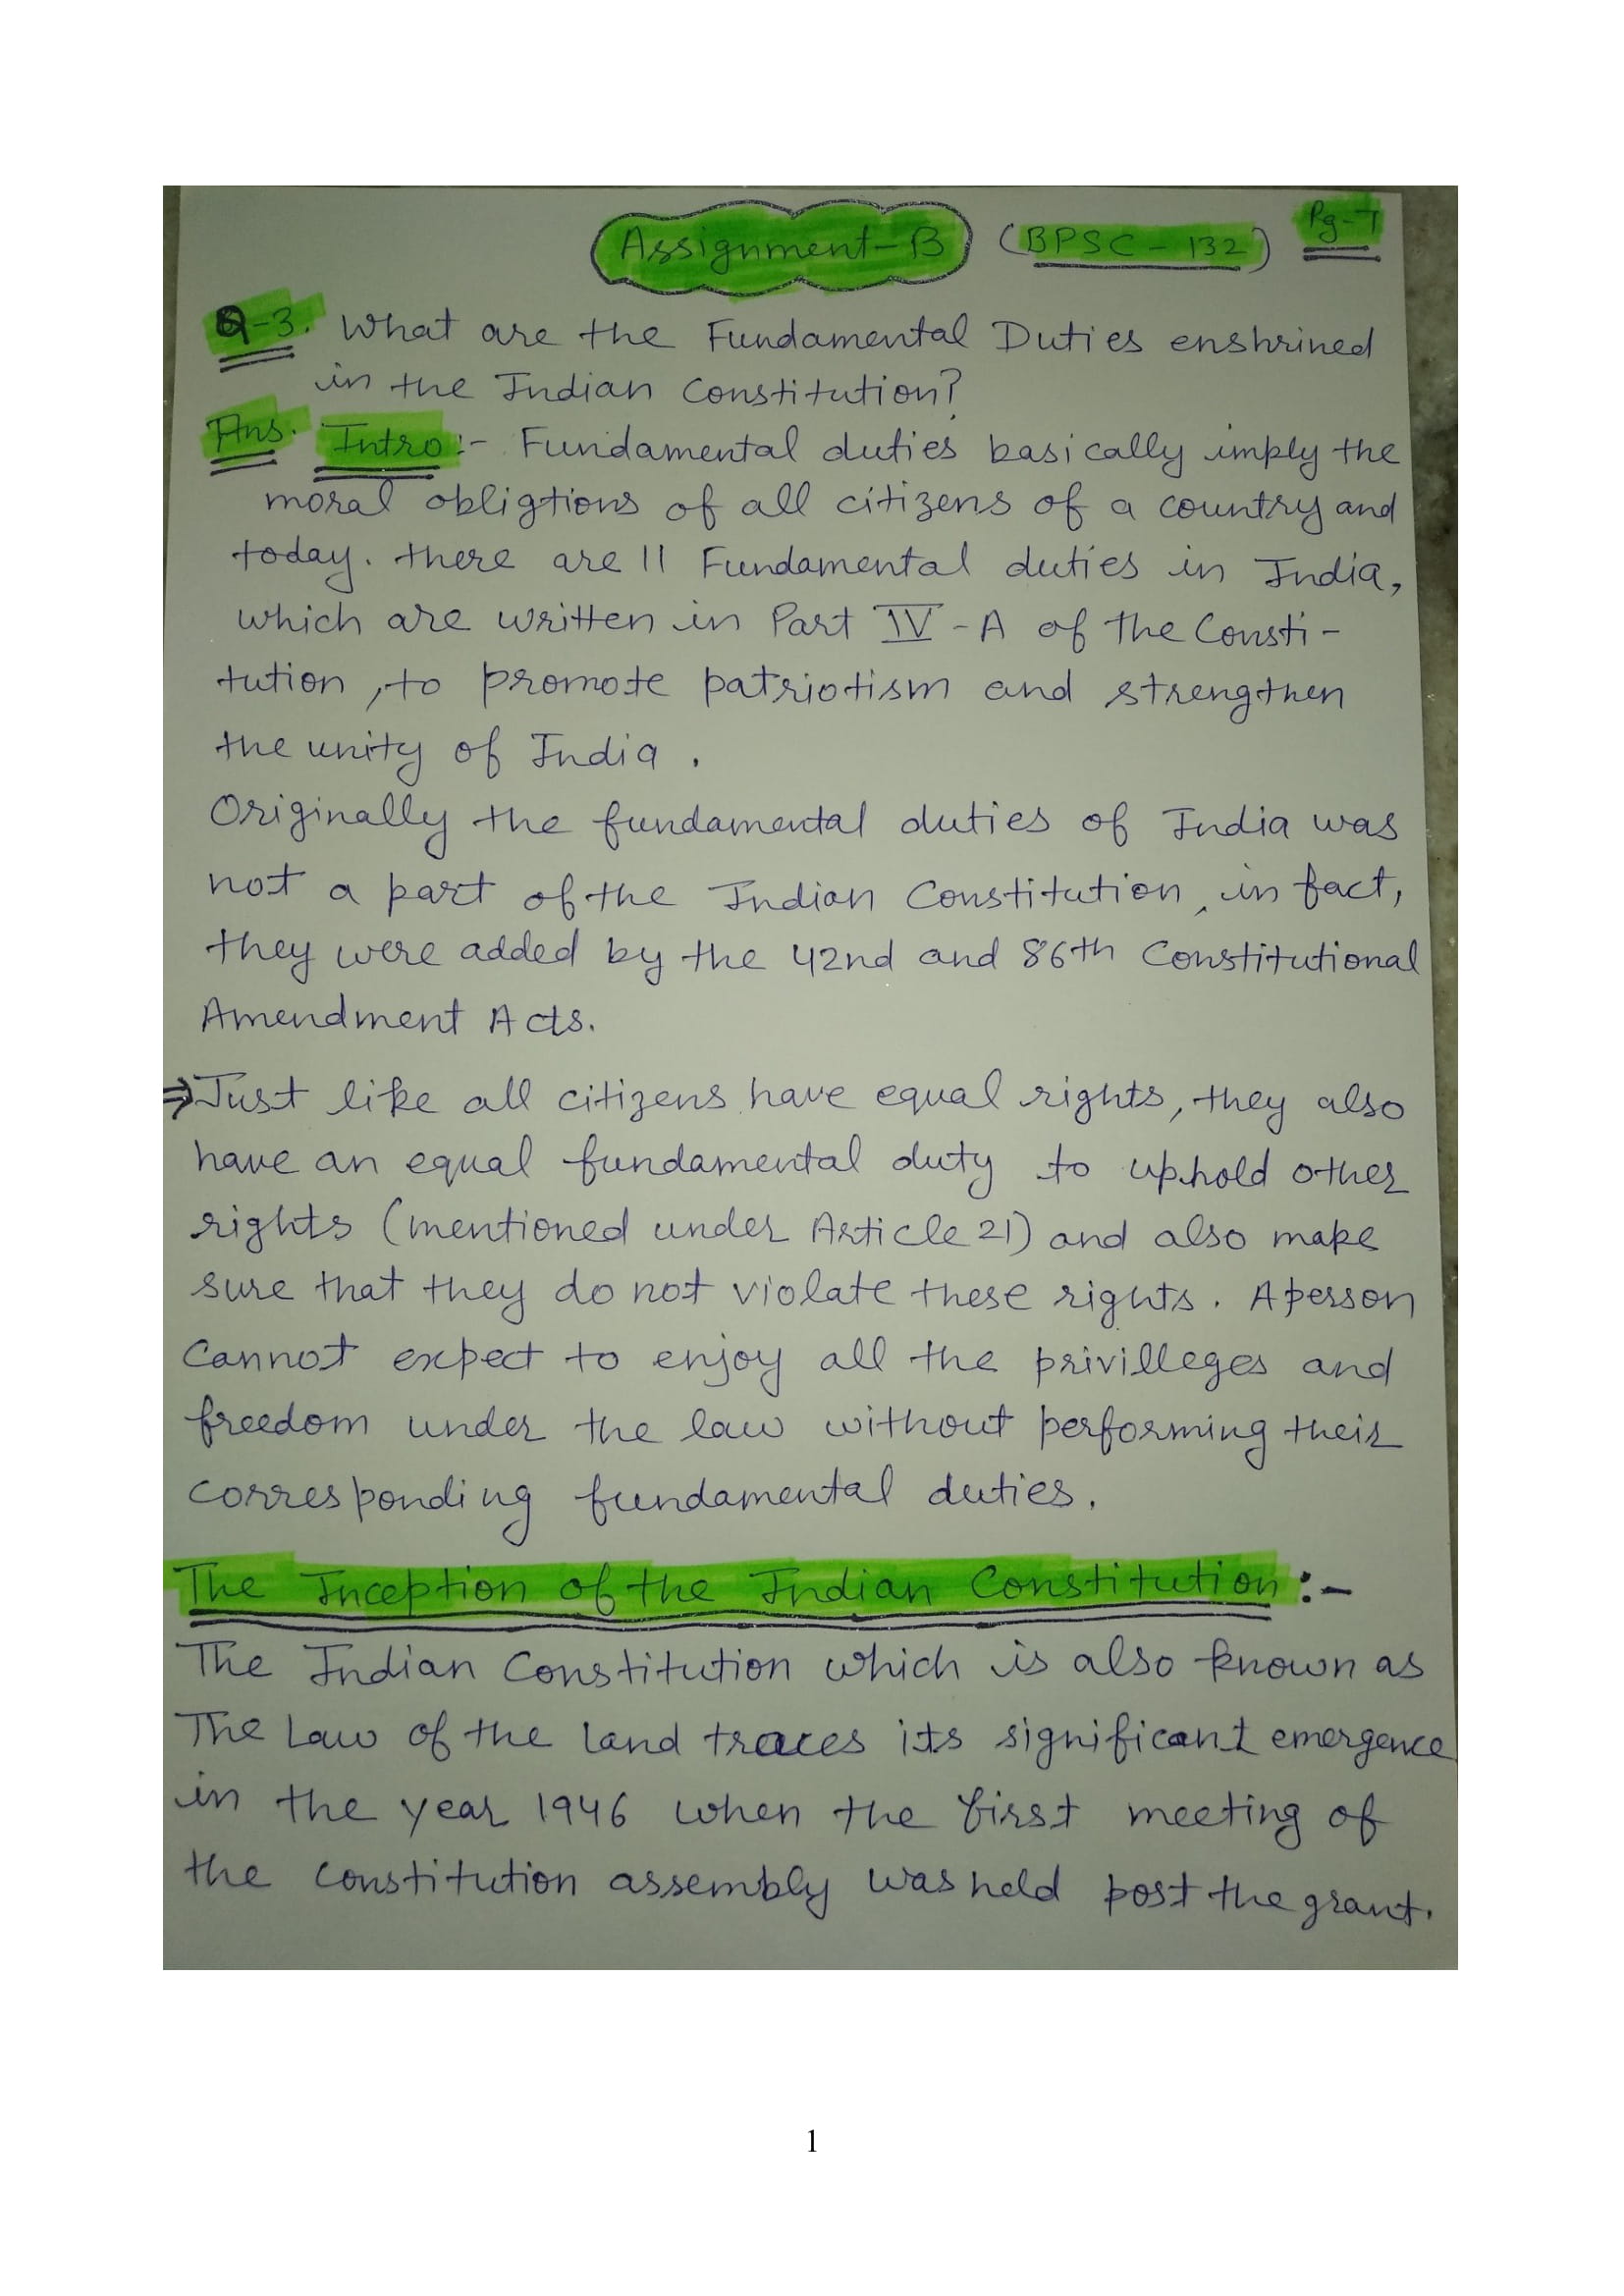 Assignment-B (BPSC-132) Pg-7
Q-3. What are the Fundamental Duties enshrined
in the Indian Constitution?
Ans. Intro:- Fundamental duties basically imply the
moral obligtions of all citizens of a country and
today. there are 11 Fundamental duties in India,
which are written in Part IV-A of the Consti-
tution, to promote patriotism and strengthen
the unity of India.
Originally the fundamental duties of India was
not a part of the Indian Constitution, in fact,
they were added by the 42nd and 86th Constitutional
Amendment Acts.
⇒ Just like all citizens have equal rights, they also
have an equal fundamental duty to uphold other
rights (mentioned under Article 21) and also make
sure that they do not violate these rights. A person
Cannot expect to enjoy all the privilleges and
freedom under the law without performing their
corresponding fundamental duties.
The Inception of the Indian Constitution:-
The Indian Constitution which is also known as
The Law of the land traces its significant emergence
in the year 1946 when the first meeting of
the constitution assembly was held post the grant.
1